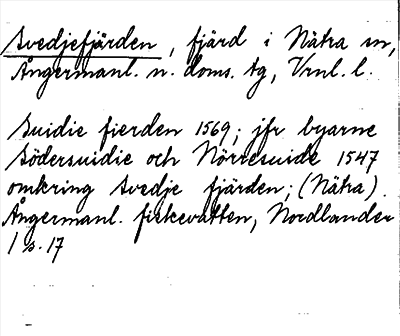 Svedjefjärden, fjärd i Nätra sn,
Ångermanl. n. doms. tg, Vrnl. l.
Suidie fierden 1569; jfr byarne
Södersuidie och Nörresuide 1547
omkring Svedje fjärden; (Nätra)
Ångermanl. fiskevatten, Nordlander
1 s. 17